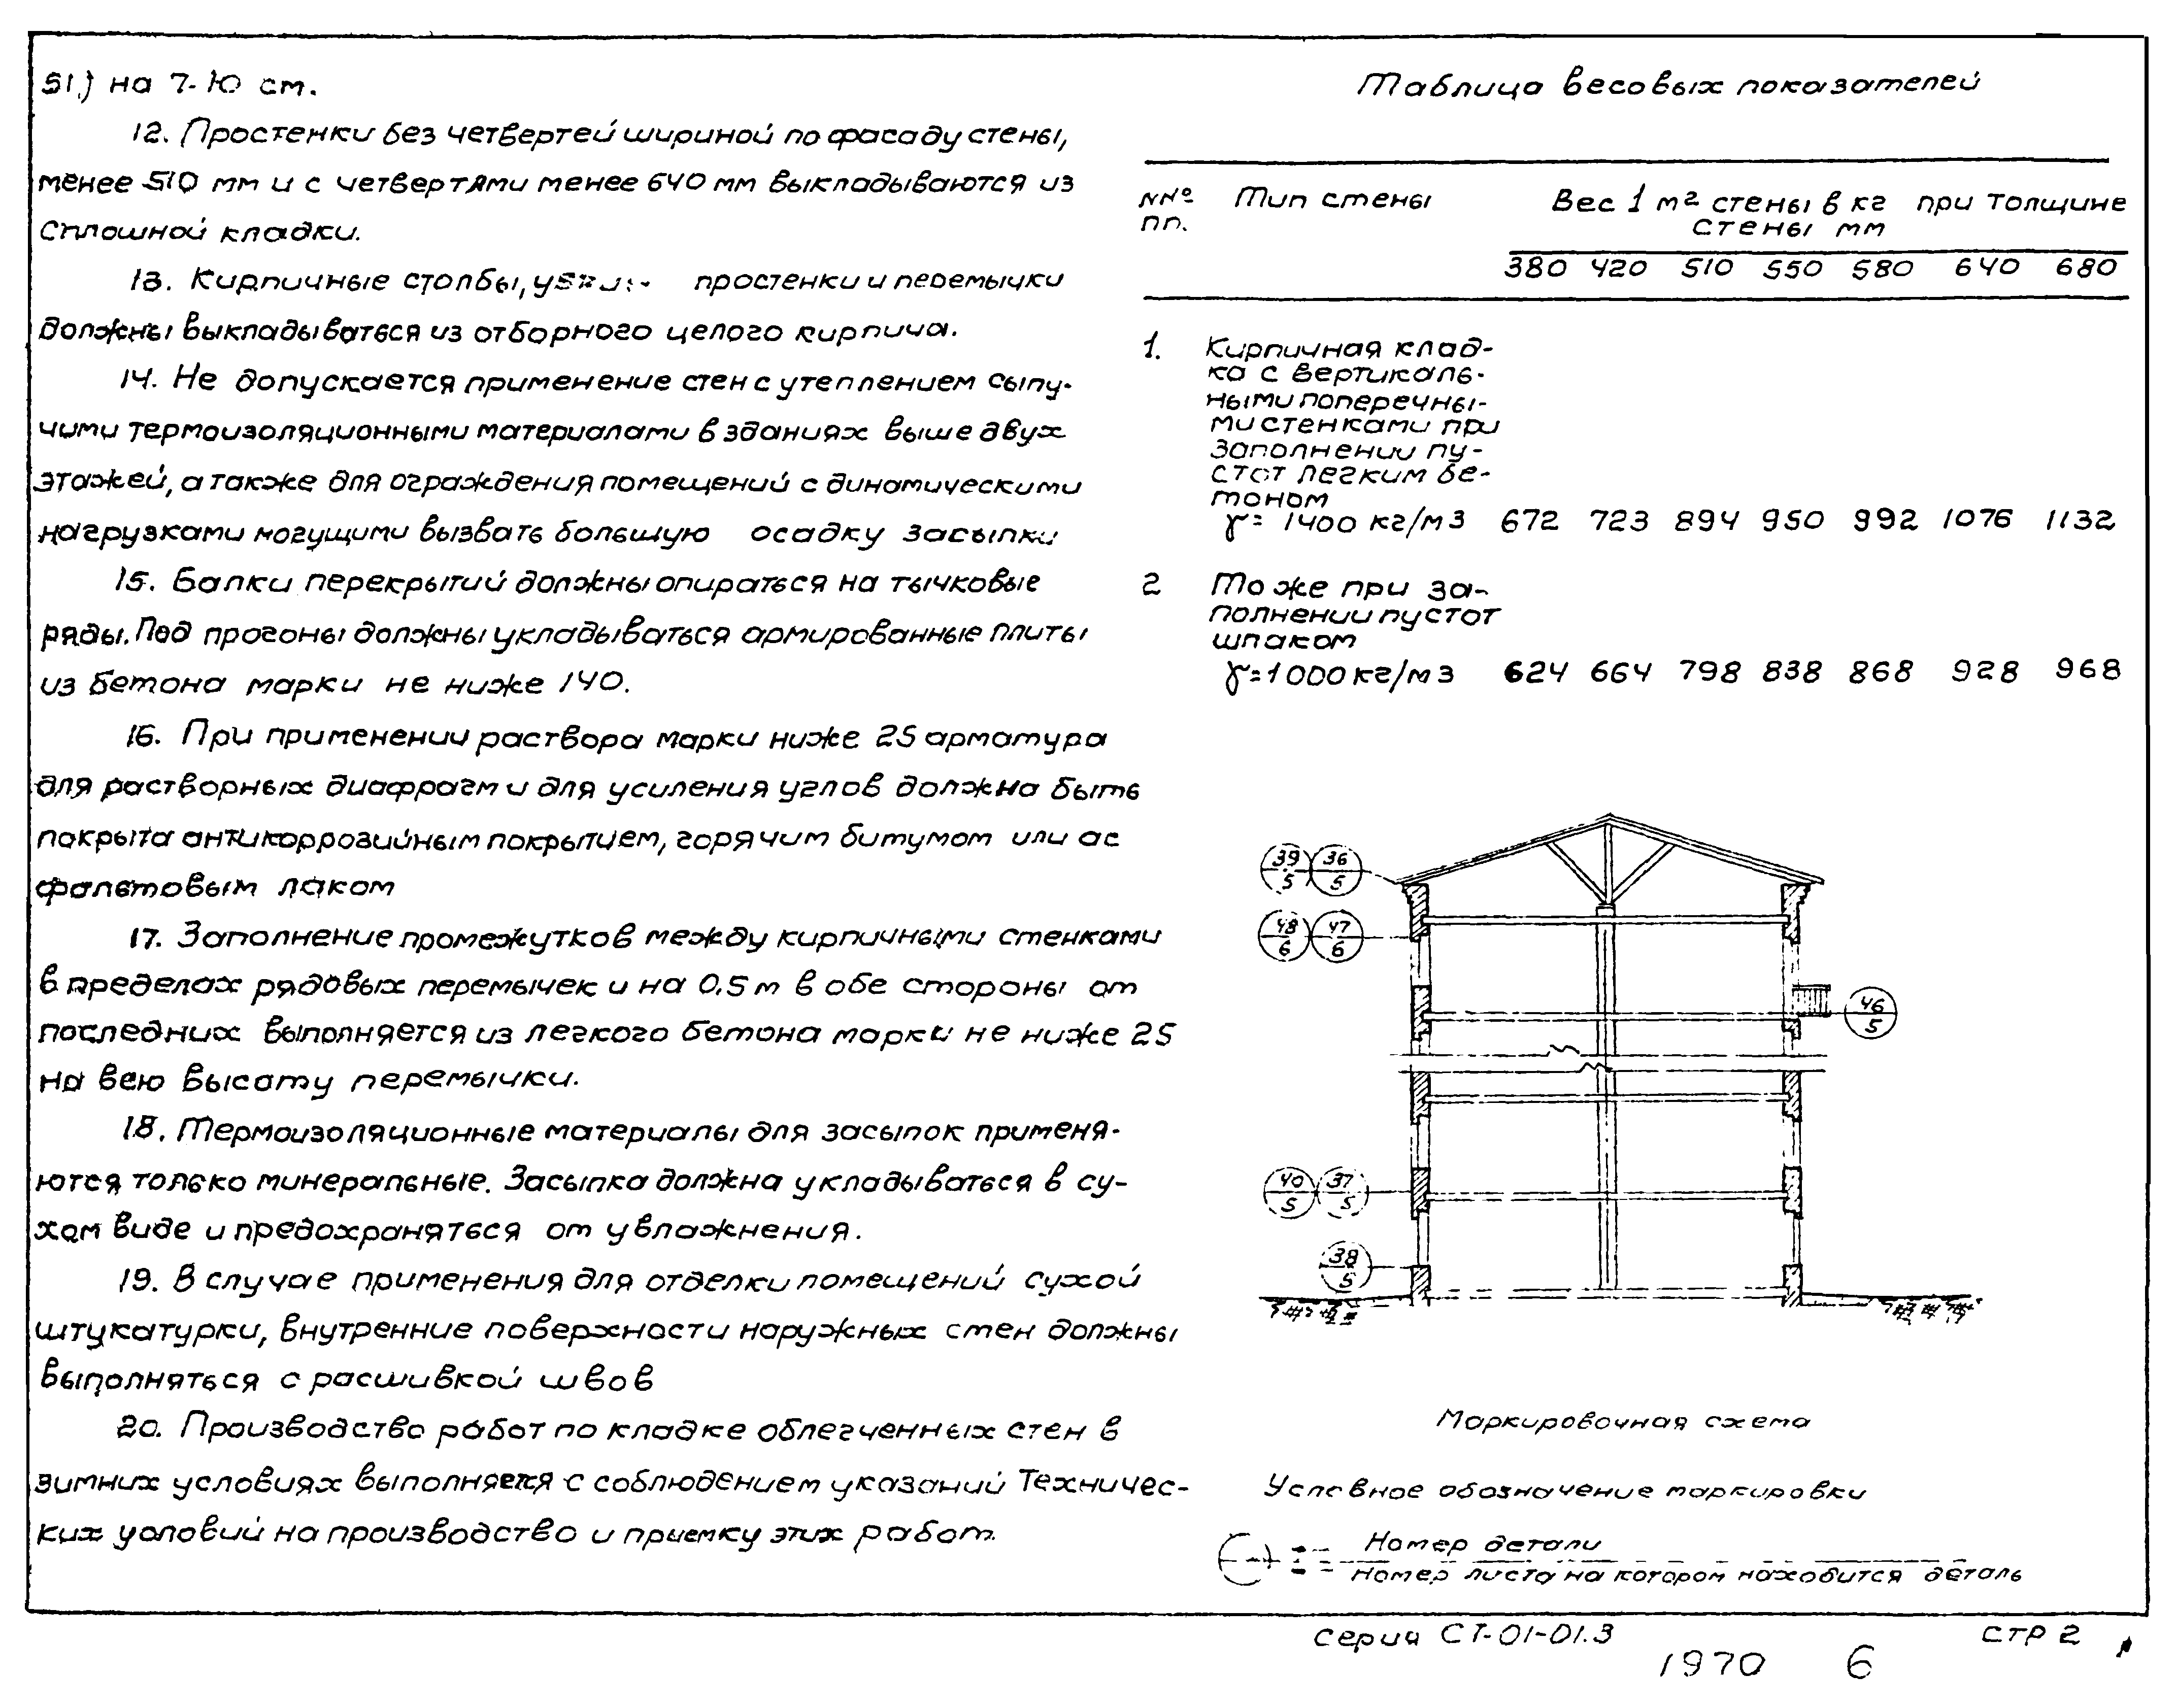 51.) на 7-10 см.
12. Простенки без четвертей шириной по фасаду стены,
менее 510 мм и с четвертями менее 640 мм выкладываются из
сплошной кладки.
13. Кирпичные столбы, простенки и перемычки
должны выкладываться из отборного целого кирпича.
14. Не допускается применение стен с утеплением сыпу-
чими термоизоляционными материалами в зданиях выше двух
этажей, а также для ограждения помещений с динамическими
нагрузками могущими вызвать большую осадку засыпки
15. Балки перекрытий должны опираться на тычковые
ряды. Под прогоны должны укладываться армированные плиты
из бетона марки не ниже 140.
16. При применении раствора марки ниже 25 арматура
для растворных диафрагм и для усиления углов должна быть
покрыта антикоррозийным покрытием, горячим битумом или ас
фальтовым лаком
17. Заполнение промежутков между кирпичными стенками
в пределах рядовых перемычек и на 0,5 м в обе стороны от
последних выполняется из легкого бетона марки не ниже 25
на всю высоту перемычки.
18. Термоизоляционные материалы для засыпок применя-
ются только минеральные. Засыпка должна укладываться в су-
хом виде и предохраняться от увлажнения.
19. В случае применения для отделки помещений сухой
штукатурки, внутренние поверхности наружных стен должны
выполняться с расшивкой швов
20. Производство работ по кладке облегченных стен в
зимних условиях выполняется с соблюдением указаний Техничес-
ких условий на производство и приемку этих работ.
Таблица весовых показателей
NNº Тип стены Вес 1 м² стены в кг при толщине
пп. стены мм
380 420 510 550 580 640 680
1. Кирпичная клад-
ка с вертикаль-
ными поперечны-
ми стенками при
заполнении пу-
стот легким бе-
тоном
γ= 1400 кг/м3 672 723 894 950 992 1076 1132
2 То же при за-
полнении пустот
шлаком
γ=1000 кг/м3 624 664 798 838 868 928 968
39 36
5 5
48 47
6 6
46
5
40 37
5 5
38
5
Маркировочная схема
Условное обозначение маркировки
Номер детали
Номер листа на котором находится деталь
серия СТ-01-01.3 СТР 2
1970 6